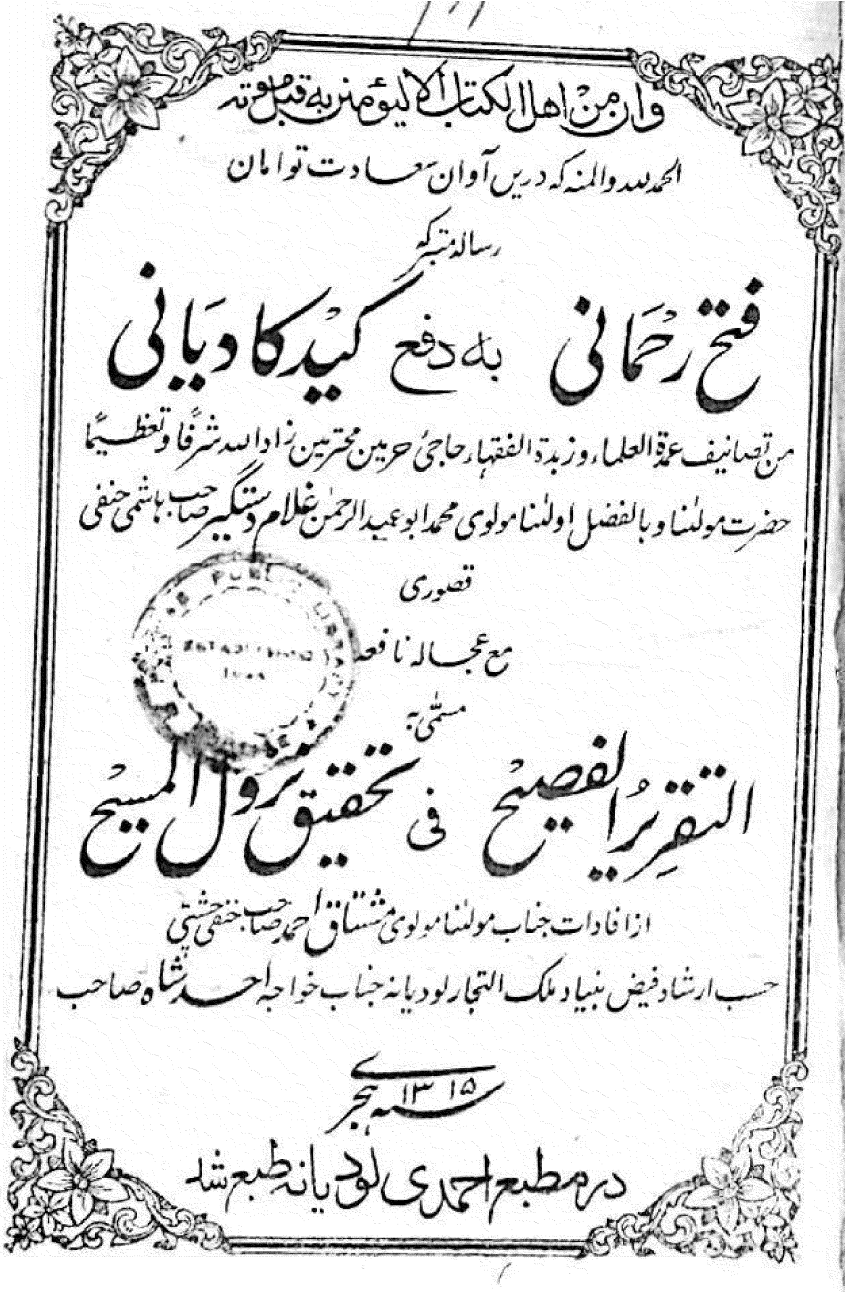 وان من اهل الكتاب الا ليؤمنن به قبل موته
الحمد لله والمنه که دریں آوان سعادت توامان
رسالۂ متبرکہ
فتح رحمانی به دفع کید کادیانی
من تصانیف عمدة العلماء وزبدة الفقهاء حاجئ حرمین محترمین زاد الله شرفًا وتعظیمًا
حضرت مولٰنا وبالفضل اولٰنا مولوی محمد ابو عبد الرحمٰن غلام دستگیر صاحب ہاشمی حنفی
قصوری
مع عجاله نافعه
PUBLIC LIBRARY
ESTABLISHED
مسمّٰی به
التقریر الفصیح فی تحقیق نزول المسیح
از افادات جناب مولٰنا مولوی مشتاق احمد صاحب حنفی چشتی
حسب ارشاد فیض بنیاد ملک التجار لودیانه جناب خواجه احمد شاه صاحب
سنه ۱۳۱۵ ہجری
در مطبع احمدی لودیانه طبع شد